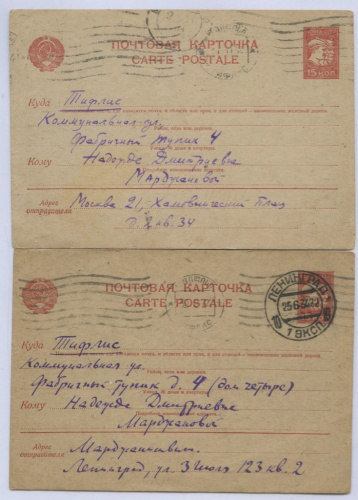 15 КОП
ПОЧТОВАЯ КАРТОЧКА
CARTE POSTALE
Куда Тифлис
Коммунальная ул.
Фабричный тупик 4
Кому Надежде Дмитриевне
Марджановой
Адрес отправителя
Москва 21, Хамовнический Плац
2 кв. 34
ПОЧТОВАЯ КАРТОЧКА
CARTE POSTALE
ЛЕНИНГРАД
1 ЭКСП
Куда Тифлис
Коммунальная ул.
Фабричный тупик д. 4 (дом четыре)
Кому Надежде Дмитриевне
Марджановой
Адрес отправителя
Ленинград, ул. 3 Июля 123 кв. 2